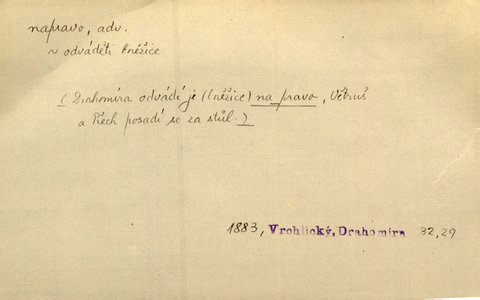 napravo, adv.
~ odváděti kněžice
(Drahomíra odvádí je (kněžice) na pravo, Větruš
a Řech posadí se za stůl.)
1883, Vrchlický, Drahomíra 32,29